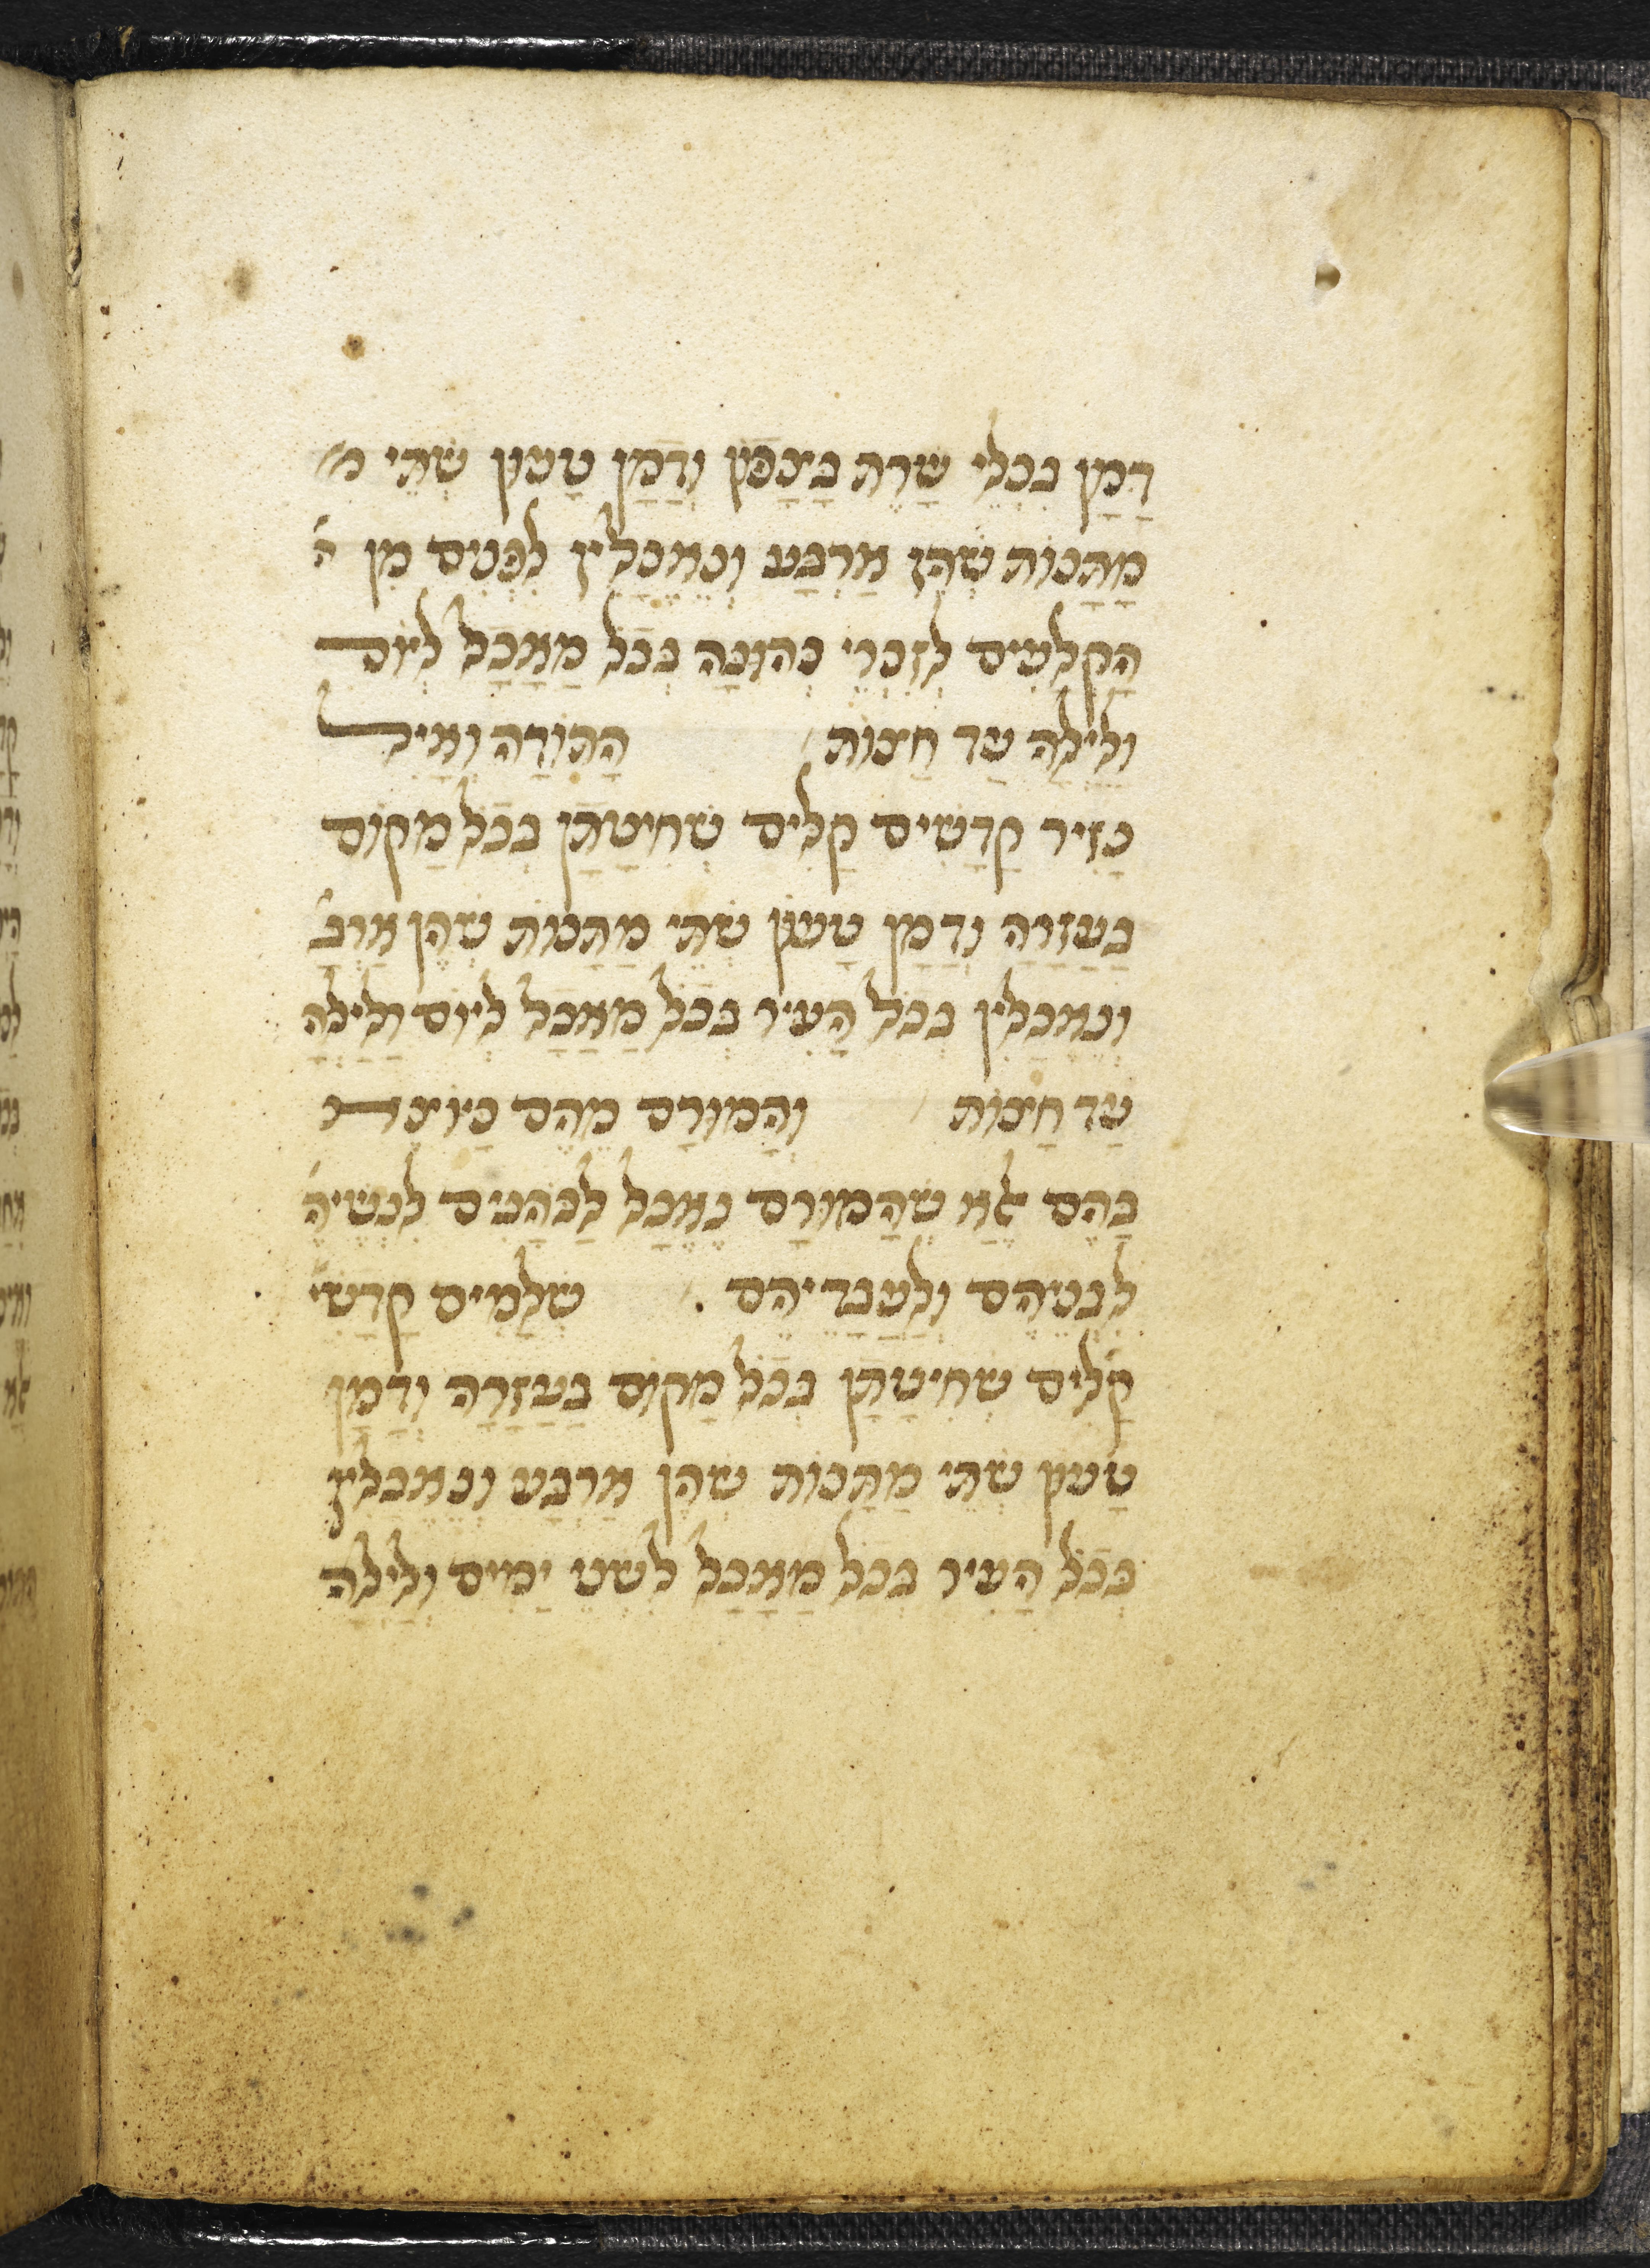 דָּמָן בִּכְלֵי שָׁרֵת בַּצָּפוֹן וְדָמָן טָעוּן שְׁתֵּי מ
מַתָּנוֹת שֶׁהֵן אַרְבַּע וְנֶאֱכָלִין לִפְנִים מִן ה'
הַקְּלָעִים לְזִכְרֵי כְהוּנָּה בְּכָל מַאֲכָל לְיוֹם
וְלַיְלָה עַד חֲצוֹת הַתּוֹדָה וְאֵיל
נָזִיר קָדָשִׁים קַלִּים שְׁחִיטָתָן בְּכָל מָקוֹם
בָּעֲזָרָה וְדָמָן טָעוּן שְׁתֵּי מַתָּנוֹת שֶׁהֵן אַרְבַּ'
וְנֶאֱכָלִין בְּכָל הָעִיר בְּכָל מַאֲכָל לְיוֹם וָלַיְלָה
עַד חֲצוֹת וְהַמּוּרָם מֵהֶם כַּיּוֹצֵא
בָּהֶם אֶלָּא שֶׁהַמּוּרָם נֶאֱכָל לַכֹּהֲנִים לִנְשֵׁיהֶ'
לִבְנֵיהֶם וּלְעַבְדֵיהֶם . שְׁלָמִים קָדָשִׁי'
קַלִּים שְׁחִיטָתָן בְּכָל מָקוֹם בָּעֲזָרָה וְדָמָן
טָעוּן שְׁתֵּי מַתָּנוֹת שֶׁהֵן אַרְבַּע וְנֶאֱכָלִין
בְּכָל הָעִיר בְּכָל מַאֲכָל לִשְׁנֵי יָמִים וְלַיְלָה